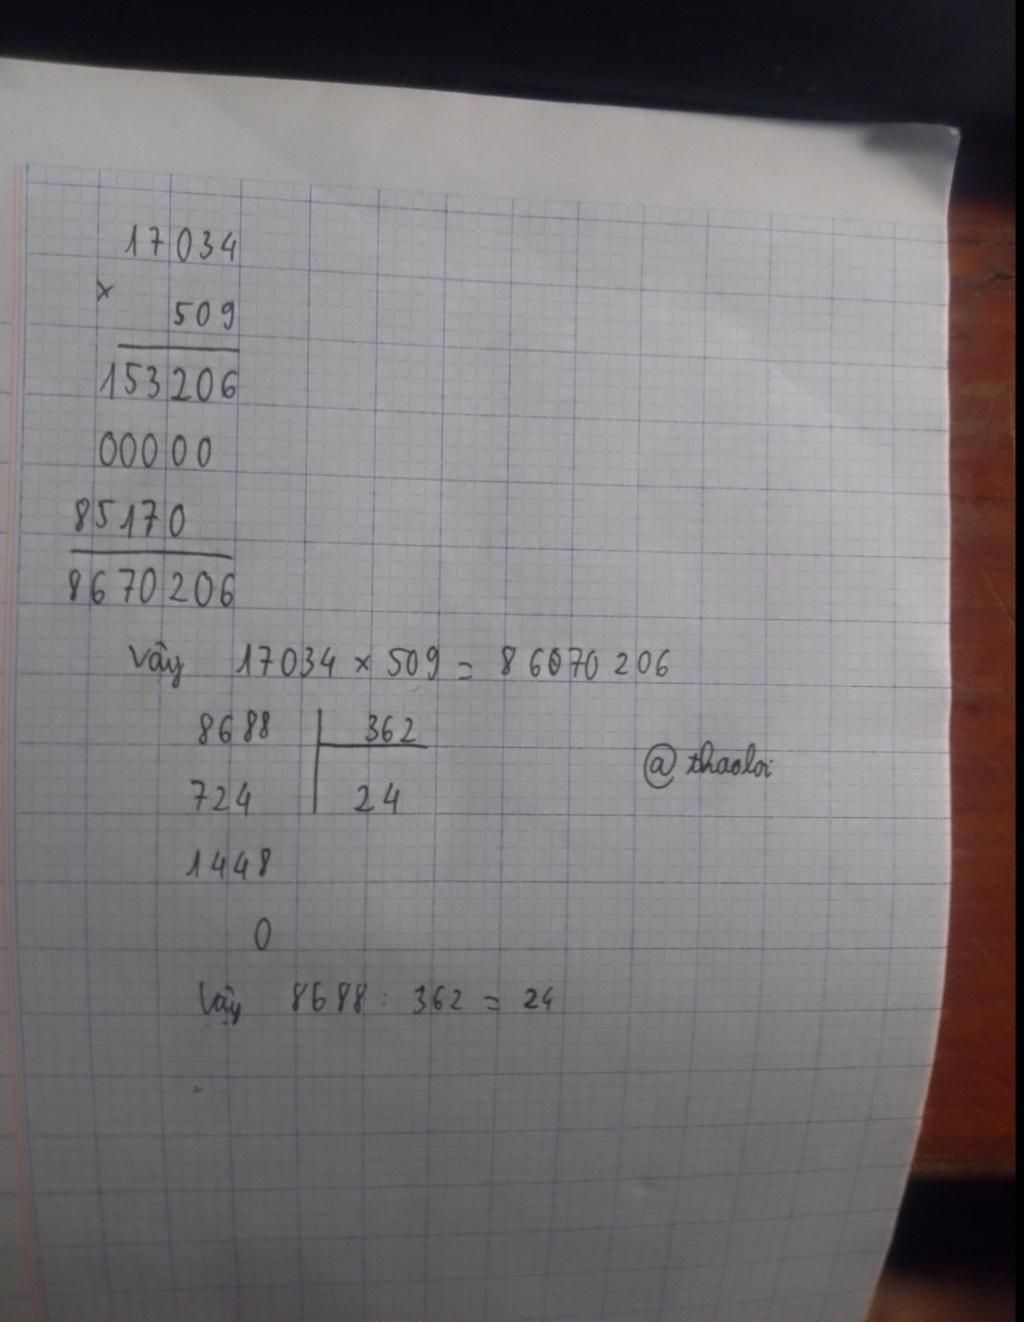 17034
×
509
153206
00000
85170
8670206
Vậy 17034 × 509 = 86070206
8688 | 362
724 | 24
1448
0
@thaoloi
Vậy 8688 : 362 = 24